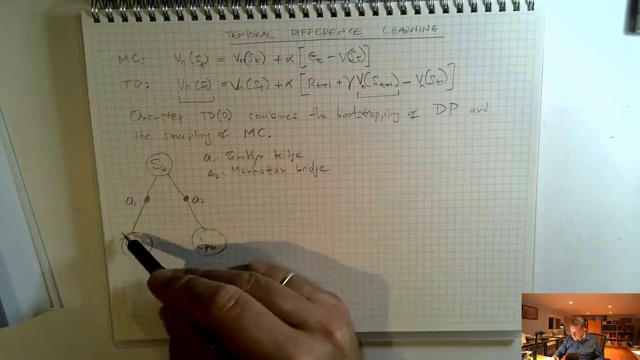 TEMPORAL DIFFERENCE LEARNING
MC: Vπ(St) = Vπ(St) + α [Gt - V(St)]
TD: Vπ(St) = Vπ(St) + α [Rt+1 + γ Vπ(St+1) - Vπ(St)]
One-step TD(0) combines the bootstrapping of DP and
the sampling of MC.
St
a1: Brooklyn bridge
a2: Manhattan bridge
a1
a2